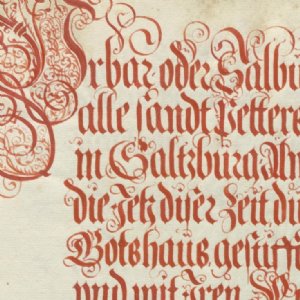 Urbar oder Salbu
alle sandt Petters
in Saltzburg An
die Jetz diser Zeit di
Gotshaus gestifft
und mit Iren We